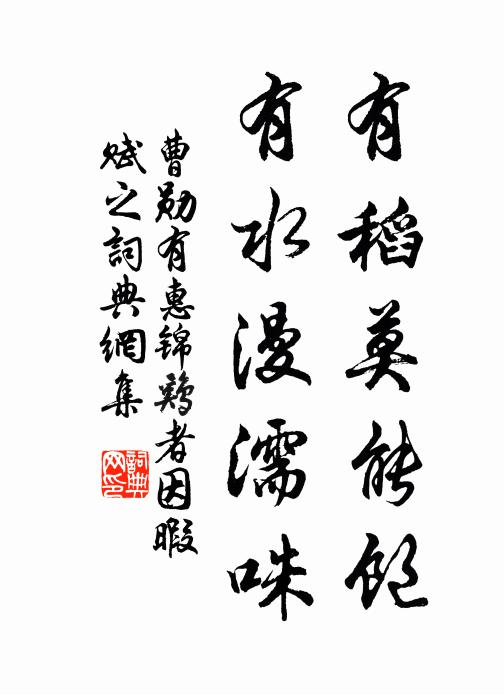 有稻莫能飽
有水漫濡咮
曹勛有惠錦鷄者因暇
賦之詞典網集
詞典
网印